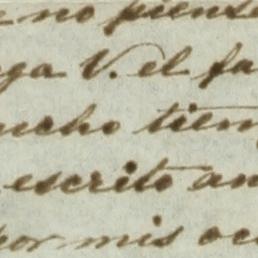 no piense
ga V. el fa
ucho tiem
escrito an
por mis oc